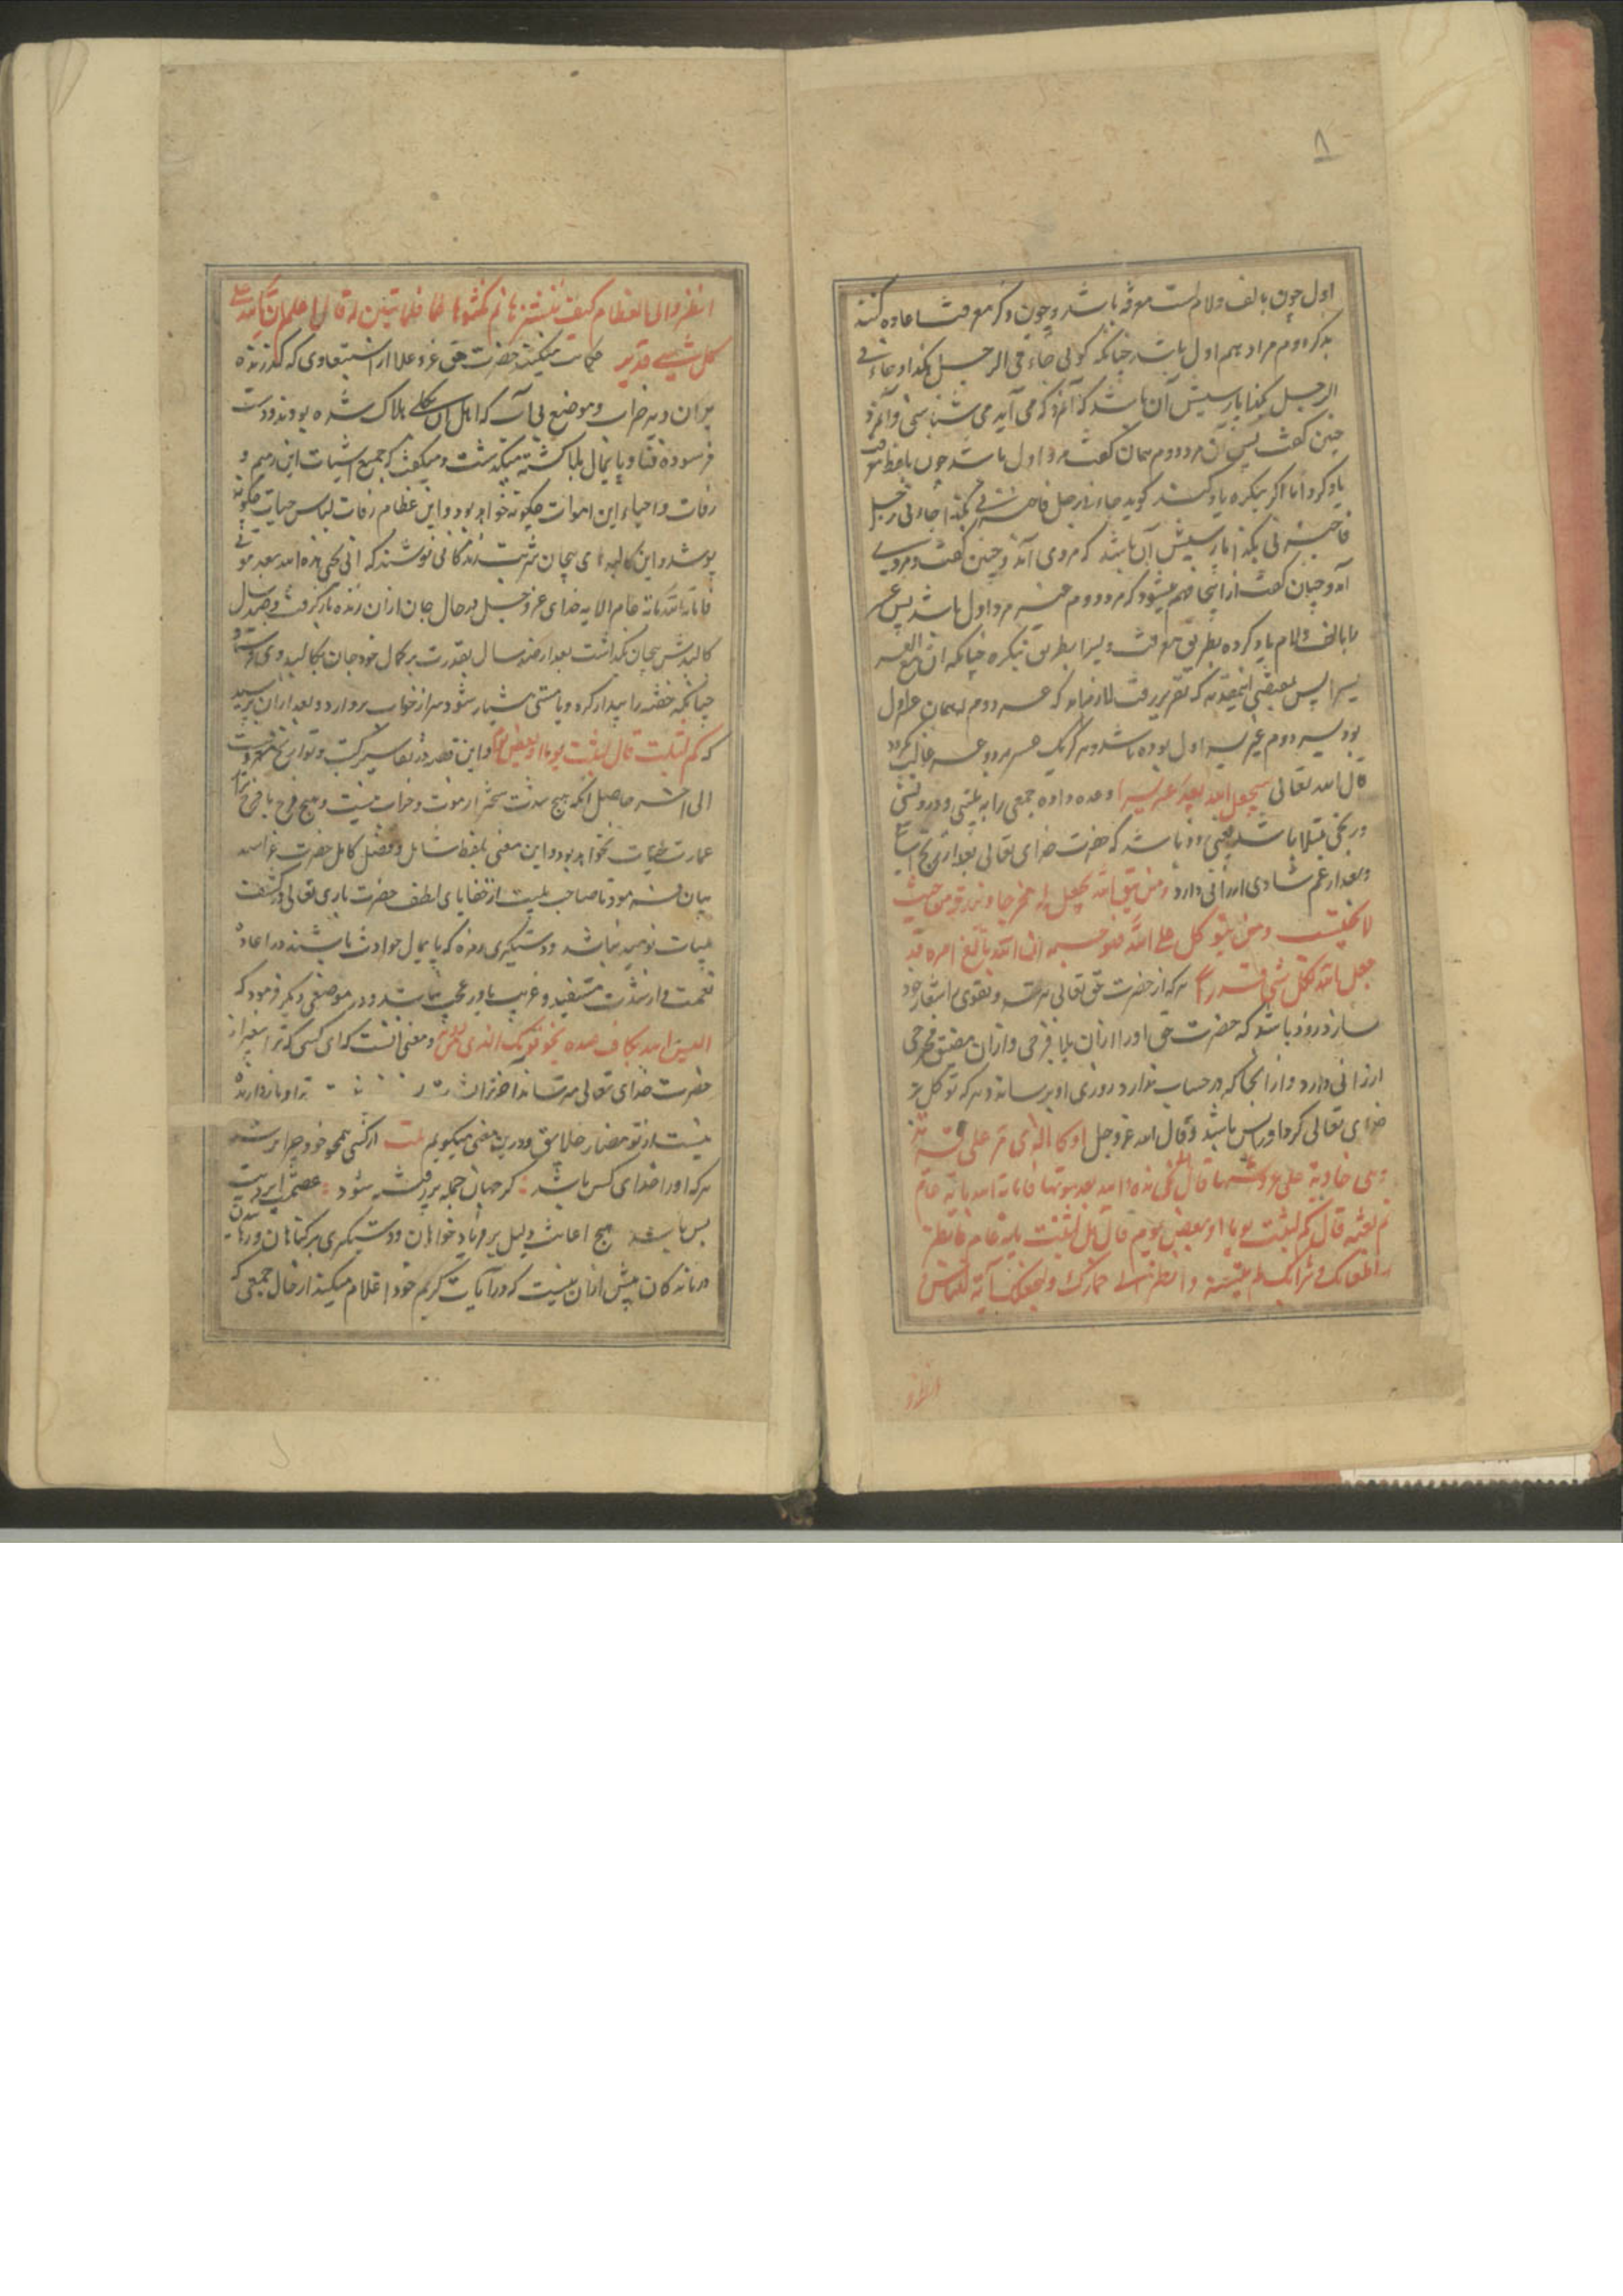 ۸
اول چون بالف ولام است معرفه باشد و چون ذکر معرفت اعاده کنند
بذکر دوم مراد هم اول باشد چنانکه کوئی جاءنی الرجل بکذا و جاءنی
الرجل بکذا پارسیش آن باشد که آنمرد که می آید می شناسی و آنمرد
چنین کفت پس آن مرد دوم همان کفت مرد اول باشد چون بلفظ معرفت
یاد کرد اما اکر بنکره یاد کند کوید جاءنی رجل فاخبرنی بکذا جاءنی رجل
فاخبرنی بکذا پارسیش آن باشد که مردی آمد و چنین کفت و مردی
آمد و چنان کفت از اینجا فهم میشود که مرد دوم غیر مرد اول باشد پس عسر
را بالف ولام یاد کرده بطریق معرفت و یسر ا بطریق نکره چنانکه ان مع العسر
یسرا پس بمقتضی اینمقدمه که تقریر رفت لازم آید که عسر دوم همان عسر اول
بود یسر دوم غیر یسر اول بوده باشد و هرکز یک عسر بر دو یسر غالب نکردد
قال الله تعالی سیجعل الله بعد عسر یسرا وعده داده جمعی را که بتنکی و درویشی
و رنجی مبتلا باشد یعنی زود باشد که حضرت خدای تعالی بعد از رنج آسایش
و بعد از غم شادی ارزانی دارد ومن یتق الله یجعل له مخرجا ویرزقه من حیث
لا یحتسب ومن یتوکل علی الله فهو حسبه ان الله بالغ امره قد
جعل الله لکل شیء قدرا هر که از حضرت حق تعالی بترسد و تقوی را شعار خود
سازد زود باشد که حضرت حق او را ازان بلا فرجی و ازان مضیق مخرجی
ارزانی دارد و از انجا که در حساب ندارد روزی او برساند و هر که توکل بر
خدای تعالی کرد او را بس باشد وقال الله عز وجل او کالذی مر علی قریة
وهی خاویة علی عروشها قال انی یحیی هذه الله بعد موتها فاماته الله مائة عام
ثم بعثه قال کم لبثت قال لبثت یوما او بعض یوم قال بل لبثت مائة عام فانظر
الی طعامک وشرابک لم یتسنه وانظر الی حمارک ولنجعلک آیة للناس
انظر و
انظر والی العظام کیف ننشزها ثم نکسوها لحما فلما تبین له قال اعلم ان الله علی
کل شیء قدیر حکایت میکند حضرت حق عز و علا از استبعادی که کذرنده
بران دیه خراب و موضع بی آب که اهل آن بکلی هلاک شده بودند و دست
فرسوده فنا و پایمال بلا کشته میکذشت و میکفت که جمیع اشتات این رمیم و
رفات و احیاء این اموات چکونه خواهد بود و این عظام رفات لباس حیات چکونه
پوشد و این کالبدهای بیجان شربت زندکانی نوشند که انی یحیی هذه الله بعد موتها
فاماته الله مائة عام الایه خدای عز وجل در حال جان ازان زنده باز کرفت و صد سال
کالبدش بیجان بکذاشت بعد از صد سال بقدرت بر کمال خود جان بکالبد وی فرستاد
چنانکه خفته را بیدار کرد و یا مستی هشیار شود و سر از خواب بردارد و بعد ازان پرسید
که کم لبثت قال لبثت یوما او بعض یوم و این قصه در تفاسیر کتب و تواریخ مشهورست
الی آخره حاصل آنکه هیچ شدت سخت تر از موت و خراب نیست و هیچ فرج بافرح تر از
عمارت حیات نخواهد بود و این معنی بلفظ شامل و فضل کامل حضرت عز اسمه
بیان فرمود تا صاحب بلیت از خفایای لطف حضرت باری تعالی در کشف
بلیات نومید نباشد و دستکیری مرده که پایمال حوادث باشند در اعاده
نعمت و از شدت مستفید و غریب یاور عجب نباشد و در موضعی دیکر فرمود که
الیس الله بکاف عبده یخوفونک بالذین من دونه و معنی آنست که ای کسی که ترا بغیر از
حضرت خدای تعالی
نیست از تو مضار خلائق و درین معنی میکویم بیت از کسی همچو خود چرا ترسد
هر که او را خدای کس باشد کر جهان جمله پر ز فتنه شود عصمت ایزدیت
بس باشد هیچ اعانت و لیل بر فریاد خواهان و دستکیری بر کناهان و رهانیدن
درماندکان بیش ازان نیست که در آیات کریم خود اعلام میکند از حال جمعی که